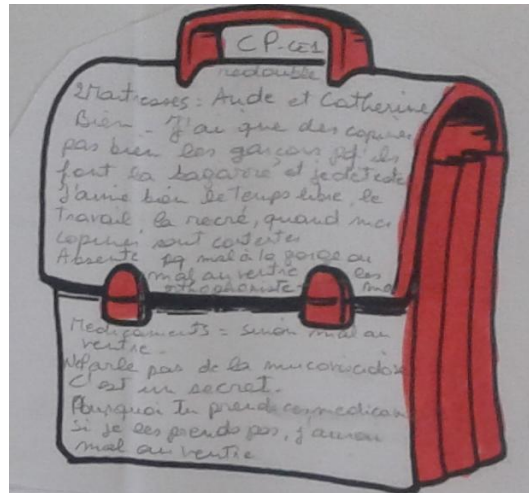 CP-CE1
redouble
2 Maitresses : Aude et Catherine
Bien - J'ai que des copines
pas bien les garçons pq ils
font la bagarre et je déteste
J'aime bien le temps libre, le
travail la recré, quand mes
copines sont contentes
Absente pq mal à la gorge ou
mal au ventre les
orthophoniste
Medicaments = sinon mal au
ventre.
Ne parle pas de la mucoviscidose
C'est un secret.
Pourquoi Tu prends ces medicam
si je les prends pas, j'aurai
mal au ventre